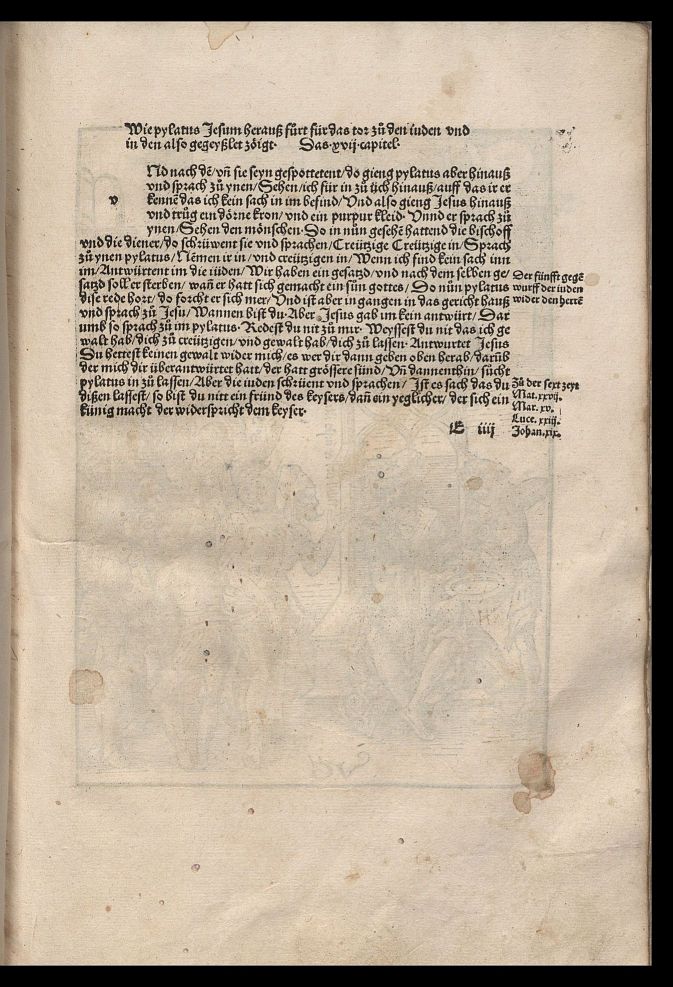 Wie pylatus Jesum herauß fürt für das tor zů den iuden vnd
in den also gegeyßlet zöigt· Das·xvij·capitel·
v
Nd nach dē/vñ sie seyn gespottetent/do gieng pylatus aber hinauß
vnd sprach zů ynen/Sehen/ich für in zů üch hinauß/auff das ir er
kennē das ich kein sach in im befind/Vnd also gieng Jesus hinauß
vnd trůg ein dörne kron/vnd ein purpur kleid·Vnnd er sprach zů
ynen/Sehen den mönschen·Do in nůn gesehē hattend die bischoff
vnd die diener/do schrüwent sie vnd sprachen/Creützige Creützige in/Sprach
zů ynen pylatus/Nēmen ir in/vnd creützigen in/Wenn ich find kein sach inn
im/Antwürtent im die iüden/Wir haben ein gesatzd/vnd nach dem selben ge/
satzd soll er sterben/wañ er hatt sich gemacht ein sün gottes/Do nůn pylatus
dise rede hort/do forcht er sich mer/Vnd ist aber in gangen in das gericht hauß
vnd sprach zů Jesu/Wannen bist du·Aber Jesus gab im kein antwürt/Dar
umb so sprach zů im pylatus·Redest du nit zů mir·Weyssest du nit das ich ge
walt hab/dich zů creützigen/vnd gewalt hab/dich zů lassen·Antwurtet Jesus
Du hettest keinen gewalt wider mich/es wer dir dann geben oben herab/darüb
der mich dir überantwürtet hatt/der hatt grössere sünd/Vñ dannenthin/sücht
pylatus in zů lassen/Aber die iuden schrüent vnd sprachen/Jst es sach das du
dißen lassest/so bist du nitt ein fründ des keysers/dañ ein yeglicher/der sich ein
künig macht der widerspricht dem keyser·
Der fünfft gegē
wurff der iuden
wider den herrē
Zů der sext zeyt
Mat.xxvij.
Mar.xv.
Luce.xxiij.
Johan.xix.
E iiij